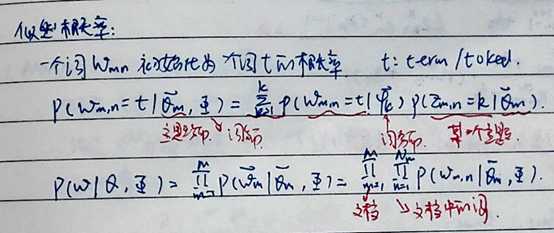 似然概率:
一个词 Wmn 初始化为一个词 t 的概率. t: term / token.
P(Wm,n = t | θ⃗m, Φ) = Σ_{k=1}^{K} P(Wm,n = t | φ⃗k) P(Zm,n = k | θ⃗m).
主题分布 词分布 词分布 某个主题
P(W | Θ, Φ) = ∏_{m=1}^{M} P(w⃗m | θ⃗m, Φ) = ∏_{m=1}^{M} ∏_{n=1}^{Nm} P(Wm,n | θ⃗m, Φ).
文档 文档中的词